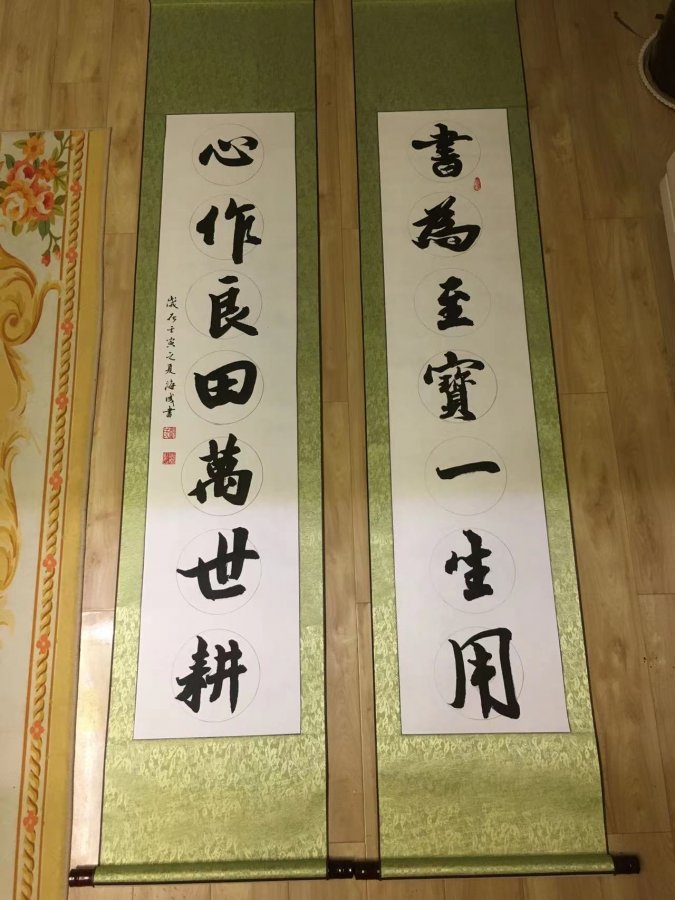 書為至寶一生用
心作良田萬世耕
歲在壬寅之夏海成書